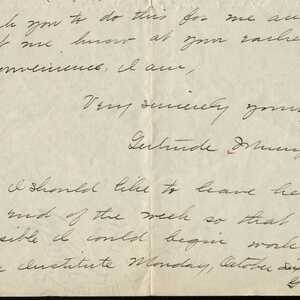 k you to do this for me an
t me know at your earlie
onvenience. I am,
Very sincerely yours
Gertrude
I should like to leave he
end of the week so that
sible I could begin work
e Institute Monday, October